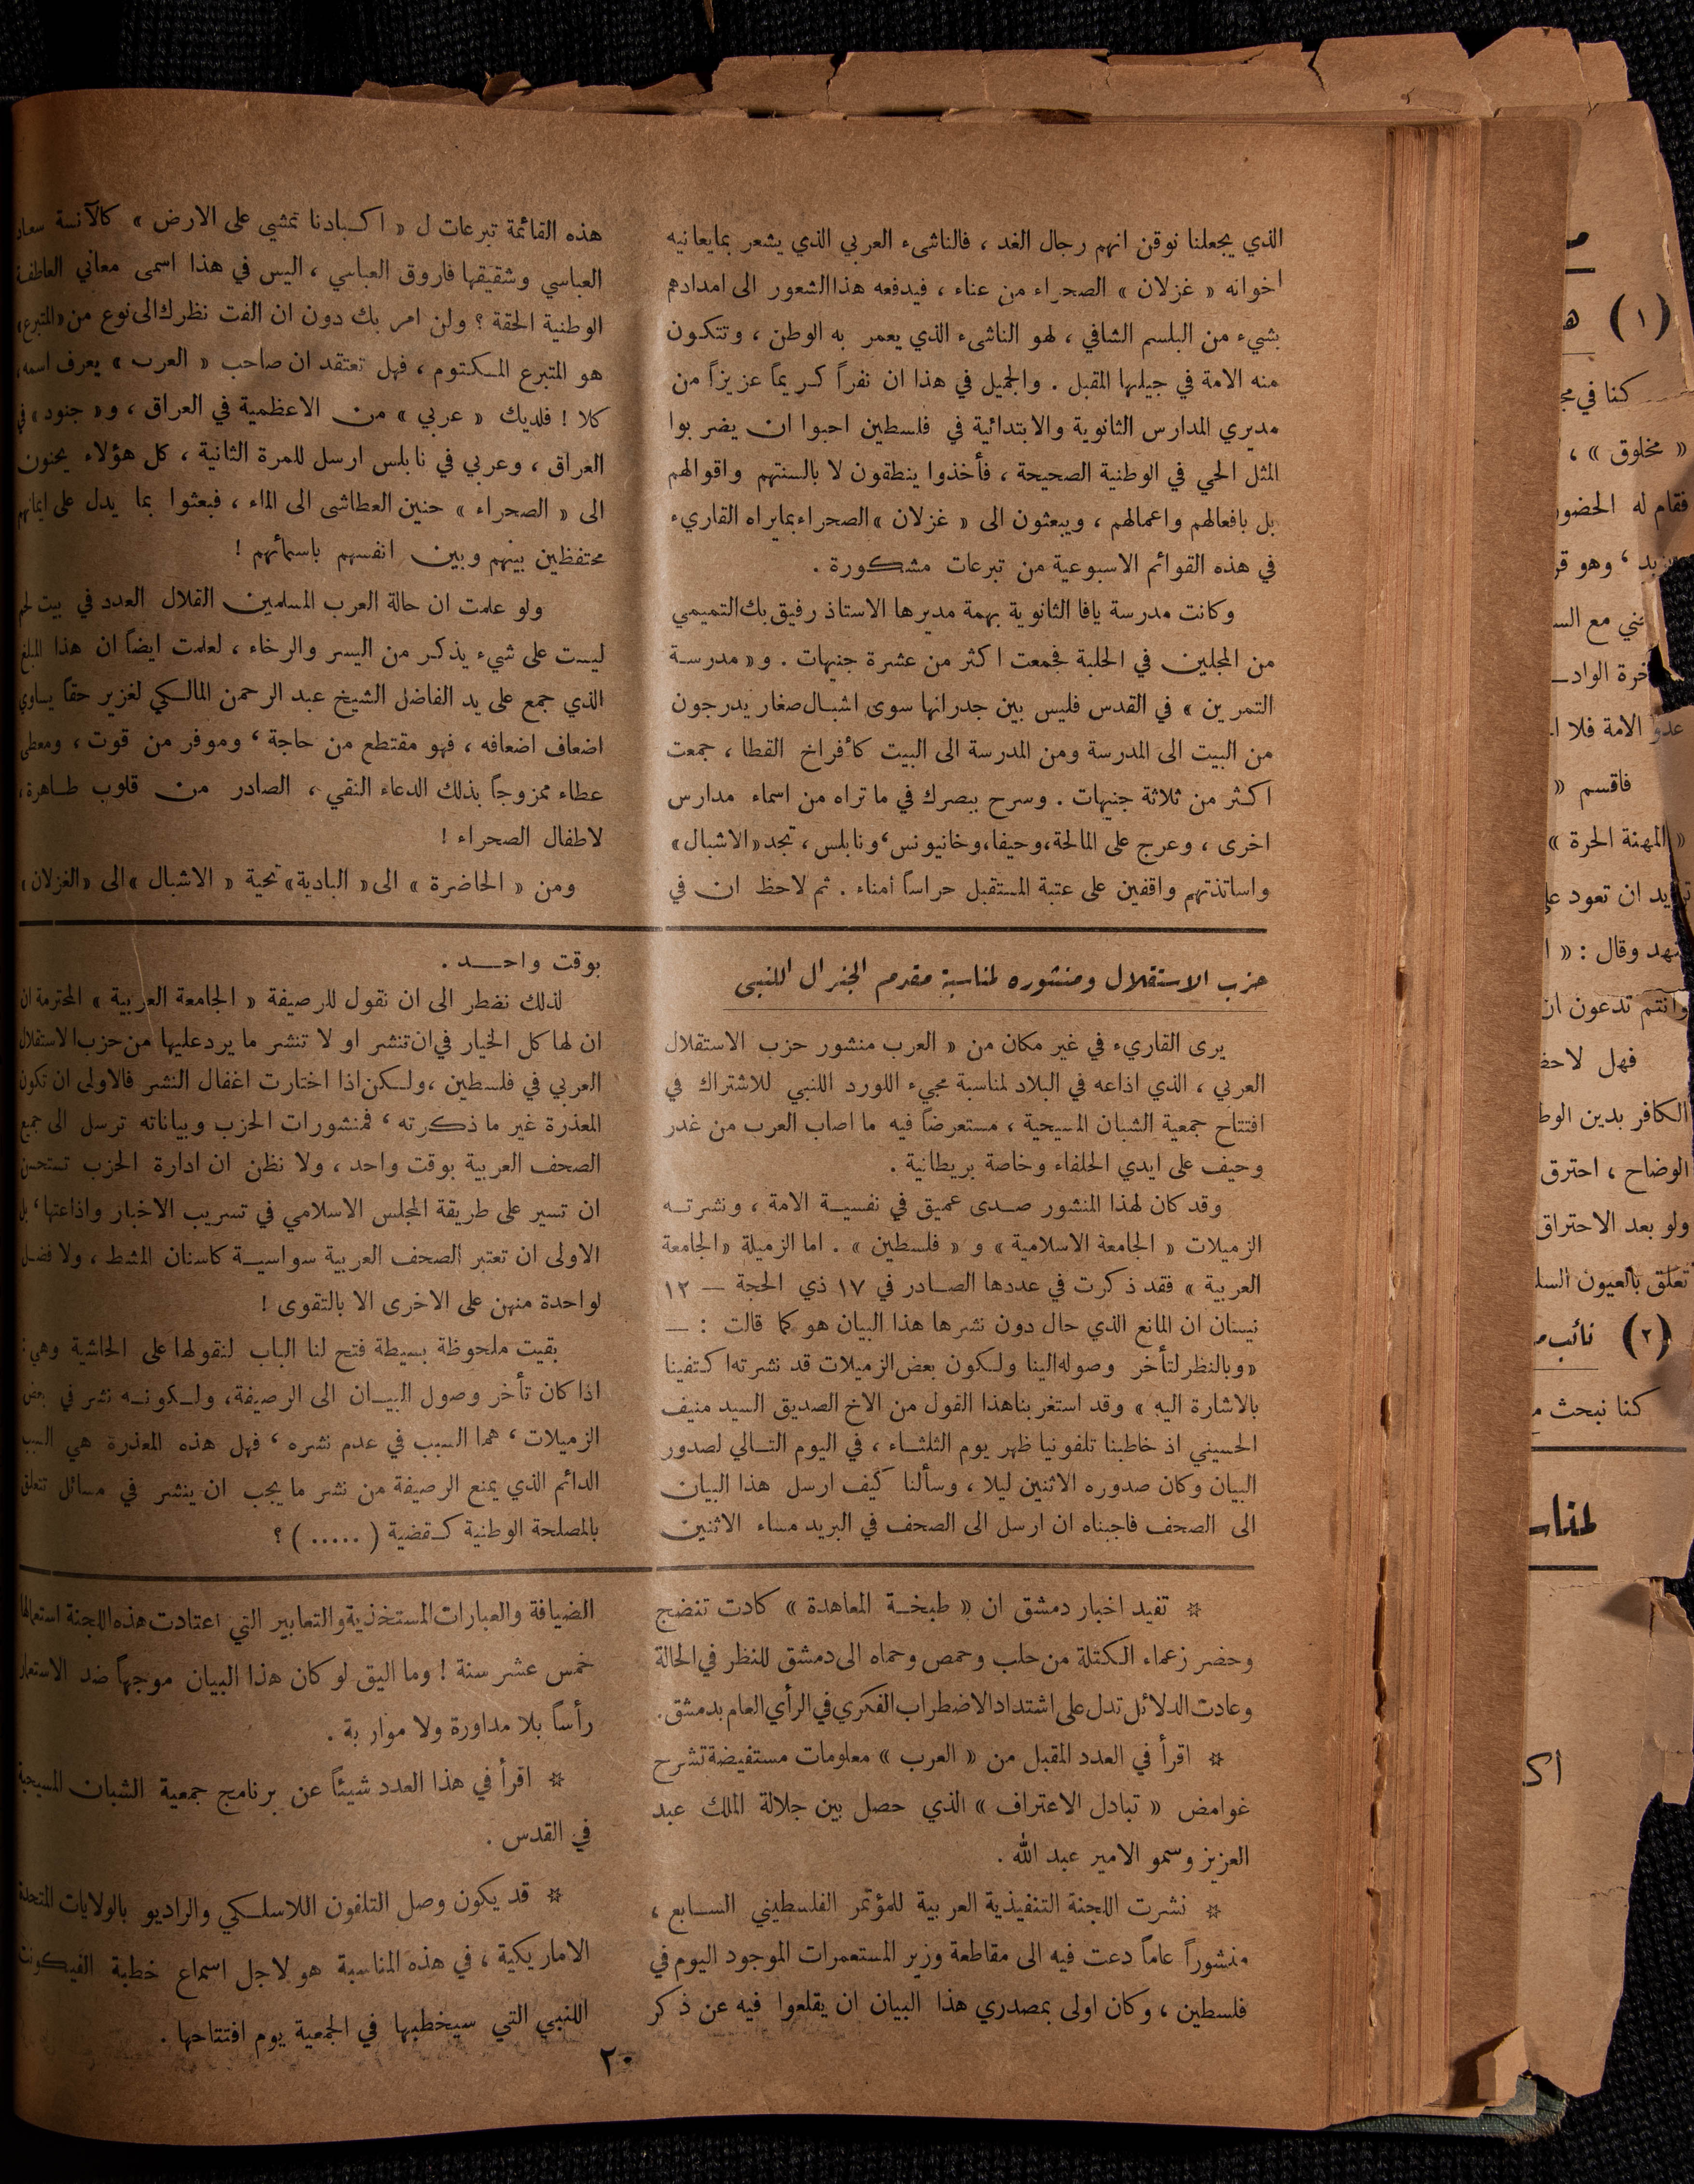 الذي يجعلنا نوقن انهم رجال الغد ، فالناشىء العربي الذي يشعر بمايعانيه
اخوانه « غزلان » الصحراء من عناء ، فيدفعه هذا الشعور الى امدادهم
بشيء من البلسم الشافي ، لهو الناشىء الذي يعمر به الوطن ، وتتكون
منه الامة في جيلها المقبل . والجميل في هذا ان نفراً كريماً عزيزاً من
مديري المدارس الثانوية والابتدائية في فلسطين احبوا ان يضربوا
المثل الحي في الوطنية الصحيحة ، فأخذوا ينطقون لا بالسنتهم واقوالهم
بل بافعالهم واعمالهم ، ويبعثون الى « غزلان » الصحراء بمايراه القاريء
في هذه القوائم الاسبوعية من تبرعات مشكورة .
وكانت مدرسة يافا الثانوية بهمة مديرها الاستاذ رفيق بك التميمي
من المجلين في الحلبة فجمعت اكثر من عشرة جنيهات . و« مدرسة
التمرين » في القدس فليس بين جدرانها سوى اشبال صغار يدرجون
من البيت الى المدرسة ومن المدرسة الى البيت كأفراخ القطا ، جمعت
اكثر من ثلاثة جنيهات . وسرح ببصرك في ما تراه من اسماء مدارس
اخرى ، وعرج على المالحة، وحيفا، وخانيونس، ونابلس ، تجد «الاشبال»
واساتذتهم واقفين على عتبة المستقبل حراساً أمناء . ثم لاحظ ان في
هذه القائمة تبرعات ل « اكبادنا تمشي على الارض » كالآنسة سعاد
العباسي وشقيقها فاروق العباسي ، اليس في هذا اسمى معاني العاطفة
الوطنية الحقة ؟ ولن امر بك دون ان الفت نظرك الى نوع من «التبرع»
هو المتبرع المكتوم ، فهل تعتقد ان صاحب « العرب » يعرف اسمه،
كلا ! فلديك « عربي » من الاعظمية في العراق ، و« جنود» في
العراق ، وعربي في نابلس ارسل للمرة الثانية ، كل هؤلاء يحنون
الى « الصحراء » حنين العطاشى الى الماء ، فبعثوا بما يدل على ايمانهم
محتفظين بينهم وبين انفسهم باسمائهم !
ولو علمت ان حالة العرب المسلمين القلال العدد في بيت لحم
ليست على شيء يذكر من اليسر والرخاء ، لعلمت ايضاً ان هذا المبلغ
الذي جمع على يد الفاضل الشيخ عبد الرحمن المالكي لغزير حقاً يساوي
اضعاف اضعافه ، فهو مقتطع من حاجة ، وموفر من قوت ، ومعطى
عطاء ممزوجاً بذلك الدعاء النقي ، الصادر من قلوب طاهرة،
لاطفال الصحراء !
ومن « الحاضرة » الى « البادية» تحية « الاشبال » الى «الغزلان»
حزب الاستقلال ومنشوره لمناسبة مقدم الجنرال اللنبي
يرى القاريء في غير مكان من « العرب منشور حزب الاستقلال
العربي ، الذي اذاعه في البلاد لمناسبة مجيء اللورد اللنبي للاشتراك في
افتتاح جمعية الشبان المسيحية ، مستعرضاً فيه ما اصاب العرب من غدر
وحيف على ايدي الحلفاء وخاصة بريطانية .
وقد كان لهذا المنشور صدى عميق في نفسية الامة ، ونشرته
الزميلات « الجامعة الاسلامية » و « فلسطين » . اما الزميلة «الجامعة
العربية » فقد ذكرت في عددها الصادر في ١٧ ذي الحجة — ١٢
نيسان ان المانع الذي حال دون نشرها هذا البيان هو كما قالت : —
«وبالنظر لتأخر وصوله الينا ولكون بعض الزميلات قد نشرته اكتفينا
بالاشارة اليه » وقد استغربنا هذا القول من الاخ الصديق السيد منيف
الحسيني اذ خاطبنا تلفونيا ظهر يوم الثلثاء ، في اليوم التالي لصدور
البيان وكان صدوره الاثنين ليلا ، وسألنا كيف ارسل هذا البيان
الى الصحف فاجبناه ان ارسل الى الصحف في البريد مساء الاثنين
بوقت واحد .
لذلك نضطر الى ان نقول للرصيفة « الجامعة العربية » المحترمة ان
ان لها كل الخيار في ان تنشر او لا تنشر ما يرد عليها من حزب الاستقلال
العربي في فلسطين ، ولكن اذا اختارت اغفال النشر فالاولى ان تكون
المعذرة غير ما ذكرته ، فمنشورات الحزب وبياناته ترسل الى جميع
الصحف العربية بوقت واحد ، ولا نظن ان ادارة الحزب تستحسن
ان تسير على طريقة المجلس الاسلامي في تسريب الاخبار واذاعتها، بل
الاولى ان تعتبر الصحف العربية سواسية كاسنان المشط ، ولا فضل
لواحدة منهن على الاخرى الا بالتقوى !
بقيت ملحوظة بسيطة فتح لنا الباب لنقولها على الحاشية وهي:
اذا كان تأخر وصول البيان الى الرصيفة، ولكونه نشر في بعض
الزميلات ، هما السبب في عدم نشره ، فهل هذه المعذرة هي السبب
الدائم الذي يمنع الرصيفة من نشر ما يجب ان ينشر في مسائل تتعلق
بالمصلحة الوطنية كقضية ( ..... ) ؟
☼ تفيد اخبار دمشق ان « طبخة المعاهدة » كادت تنضج
وحضر زعماء الكتلة من حلب وحمص وحماه الى دمشق للنظر في الحالة
وعادت الدلائل تدل على اشتداد الاضطراب الفكري في الرأي العام بدمشق.
☼ اقرأ في العدد المقبل من « العرب » معلومات مستفيضة تشرح
غوامض « تبادل الاعتراف » الذي حصل بين جلالة الملك عبد
العزيز وسمو الامير عبد الله .
☼ نشرت اللجنة التنفيذية العربية للمؤتمر الفلسطيني السابع ،
منشوراً عاماً دعت فيه الى مقاطعة وزير المستعمرات الموجود اليوم في
فلسطين ، وكان اولى بمصدري هذا البيان ان يقلعوا فيه عن ذكر
الضيافة والعبارات المستخذية والتعابير التي اعتادت هذه اللجنة استعمالها
خمس عشر سنة ! وما اليق لو كان هذا البيان موجهاً ضد الاستعمار
رأساً بلا مداورة ولا مواربة .
☼ اقرأ في هذا العدد شيئاً عن برنامج جمعية الشبان المسيحية
في القدس .
☼ قد يكون وصل التلفون اللاسلكي والراديو بالولايات المتحدة
الاماريكية ، في هذه المناسبة هو لاجل اسماع خطبة الفيكونت
اللنبي التي سيخطبها في الجمعية يوم افتتاحها .
٢٠
(١)
كنا في
« مخلوق » ،
فقام له الحضور
وهو
مع
عدو الامة فلا
فاقسم «
« المهنة الحرة »
ان تعود
وقال : «
وانتم تدعون ان
فهل
الكافر بدين
الوضاح ، احترق
ولو بعد الاحتراق
تعلق بالعيون
(٢) نائب
كنا نبحث